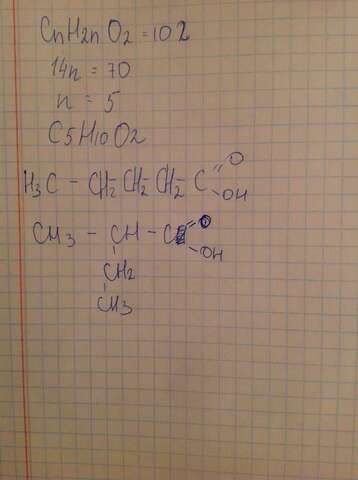 CnH2nO2 = 102
14n = 70
n = 5
C5H10O2
O
H3C - CH2 - CH2 - CH2 - C
OH
O
CH3 - CH - C
OH
CH2
CH3